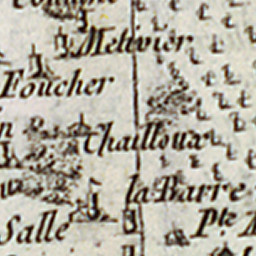 Metivier
Foucher
Chailloux
la Barre
Salle
Pte